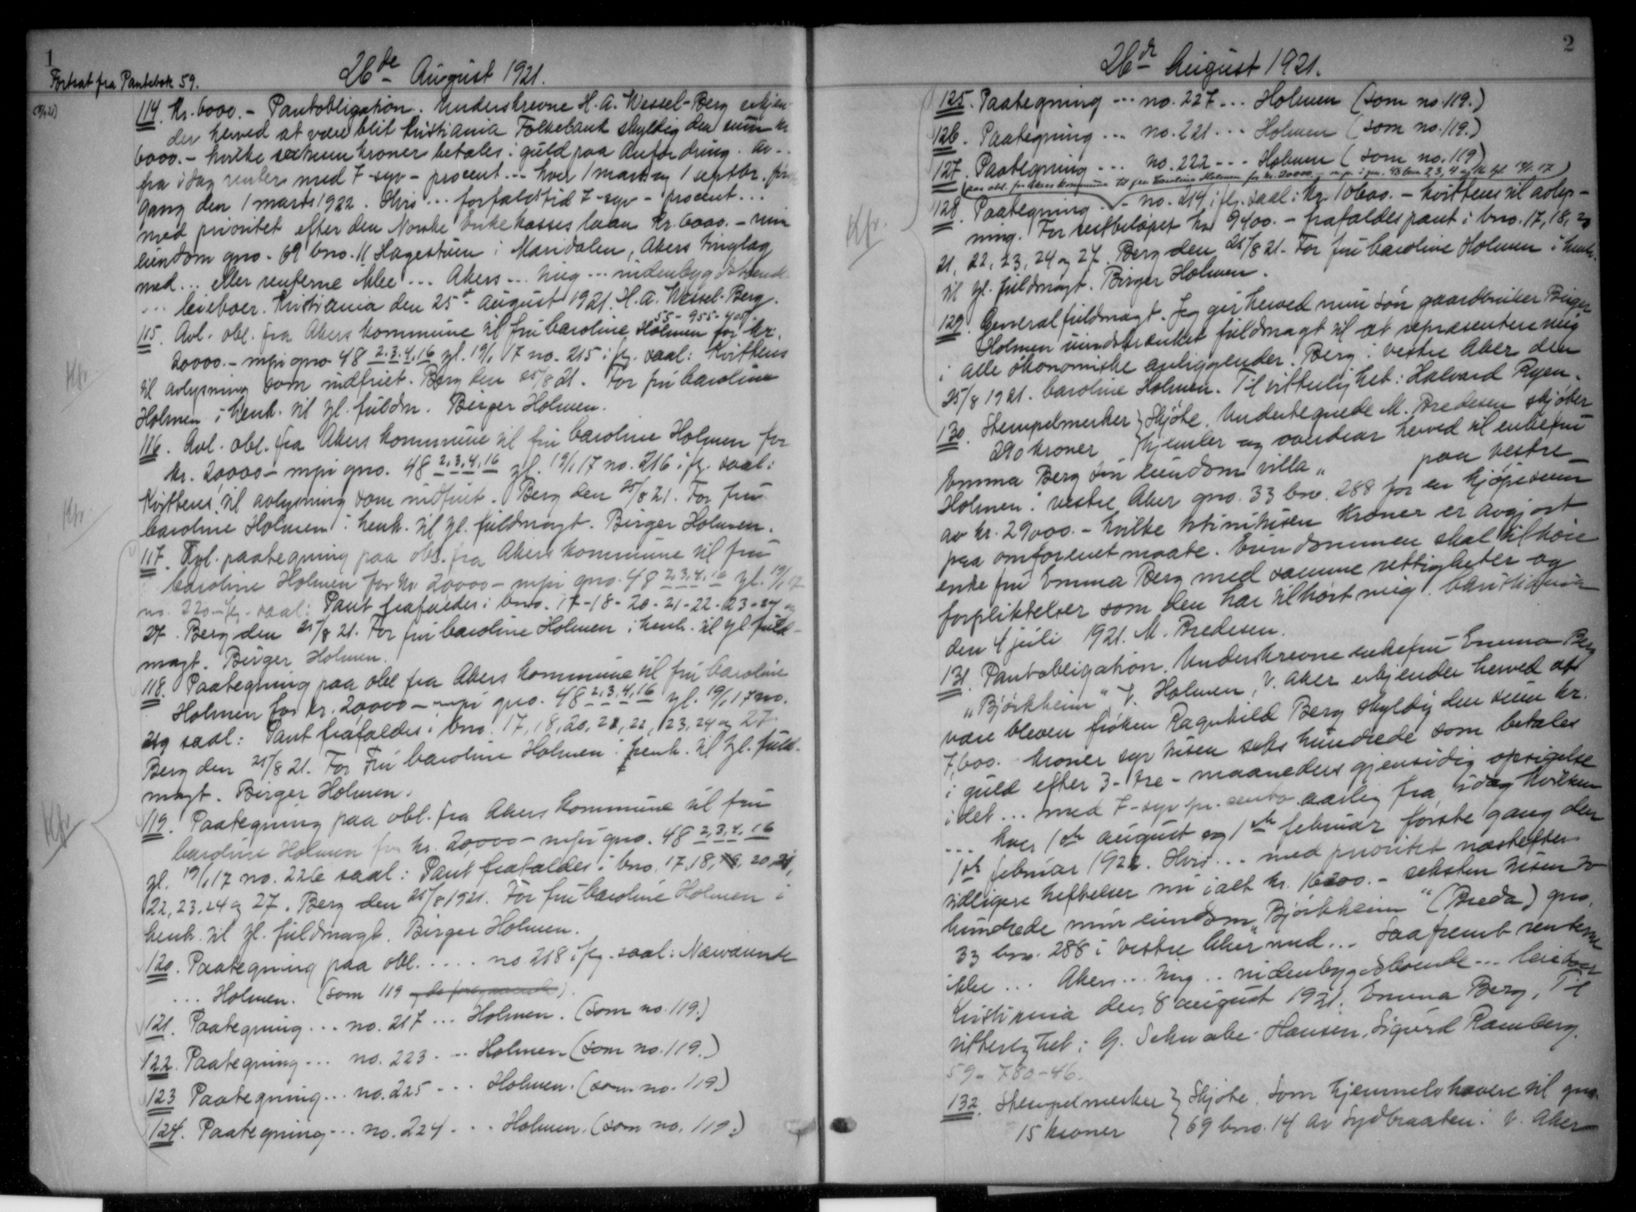 1
Fortsat fra Pantebok 59.
26de August 1921.
114. Kr. 6000.- Pantobligation. Underskrevne H. A. Wessel-Berg erkjen-
der herved at være blit Kristiania Folkebank skyldig den sum kr
6000.- hvilke sextusen kroner betales i guld paa anfordring. av..
fra idag renter med 7-syv-procent... hver 1 mars og 1 septbr. før
gang den 1 mars 1922. Hvis... forfaldstid 7-syv-procent...
med prioritet efter den Norske Enkekasses laan kr. 6000.- min
eiendom gno. 69 bno. 11 Hagestuen i Maridalen, Akers tinglag
med... eller renterne ikke... Akers... meg... indenbygdsboende
... leieboer. Kristiania den 25de august 1921. H. A. Wessel-Berg.
55-955-400
115. Avl. obl. fra Akers kommune til fru Caroline Holmen for kr.
20000.- mpi gno 48 2.3.4.16 gl. 19/1 17 no. 215 i flg. saal: Kvitteres
til avlysning som indfriet. Berg den 25/8 21. For fru Caroline
Holmen i henh. til gl. fuldm. Birger Holmen.
116. Avl. obl. fra Akers kommune til fru Caroline Holmen for
kr. 20,000- mpi gno. 48 2.3.4.16 gl. 19/1 17 no. 216 i flg. saal:
Kvitteres til avlysning som indfriet. Berg den 25/8 21. For fru
Caroline Holmen i henh. til gl. fuldmagt. Birger Holmen.
117. paategning paa obl. fra Akers kommune til fru
Caroline Holmen for kr 20000- mpi gno. 48 2.3.4.16 gl. 19/1 17
no. 220 i flg. saal: Pant frafaldes i bno. 17-18-20-21-22-23-24 og
27. Berg den 25/8 21. For fru Caroline Holmen i henh. til gl. fuld-
magt. Birger Holmen.
118. Paategning paa obl. fra Akers kommune til fru Caroline
Holmen for kr. 20,000- mpi gno. 48 2.3.4.16 gl. 19/1 17 no.
219 saal: Pant frafaldes i bno. 17, 18, 20, 21, 22, 23, 24 og 27.
Berg den 25/8 21. For Fru Caroline Holmen i henh. til gl. fuld-
magt. Birger Holmen.
119. Paategning paa obl. fra Akers kommune til fru
Caroline Holmen for kr. 20,000- mpi gno. 48 2.3.4.16
gl. 19/1 17 no. 226 saal: Pant frafaldes i bno. 17, 18, 20, 21,
22, 23, 24 og 27. Berg den 25/8 1921. For fru Caroline Holmen i
henh. til gl. fuldmagt. Birger Holmen.
120. Paategning paa obl. .... no. 218 i flg. saal: Nævnte
... Holmen. (som 119 )
121. Paategning... no. 217... Holmen. (som no. 119.)
122. Paategning... no. 223... Holmen (som no. 119.)
123 Paategning... no. 225... Holmen. (som no. 119.)
124. Paategning... no. 224... Holmen. (som no. 119.)
Kfr.
Kfr.
Kfr.
2
26de August 1921.
125. Paategning... no. 227... Holmen (som no 119.)
126. Paategning... no. 221... Holmen (som no. 119.)
127. Paategning... no. 222... Holmen (som no. 119)
paa obl. fra Akers kommune til fru Caroline Holmen for kr. 20000.- mpi i gno. 48 bno 2,3,4 og 16 gl. 19/1 17)
128. Paategning - no. 214 i flg. saal: kr. 10600.- kvitteres til avlys-
ning. For restbeløpet kr 9400.- frafaldes pant i bno. 17, 18, 20
21, 22, 23, 24 og 27. Berg den 25/8 21. For fru Caroline Holmen i henh.
til gl. fuldmagt. Birger Holmen.
129. Generalfuldmagt. Jeg gir herved min søn gaardbruker Birger
Holmen uindskrænket fuldmagt til at repræsentere mig
i alle økonomiske anliggender. Berg i vestre Aker den
25/8 1921. Caroline Holmen. Til vitterlighet: Halvard Ryen.
130. Stempelmerker } Skjøte. Undertegnede M. Bredesen skjøter
290 kroner } hjemler og overdrar herved til enkefru
Emma Berg sin eiendom villa " paa vestre
Holmen i vestre Aker gno. 33 bno. 288 for en kjøpesum
av kr. 29000.- hvilke kroner er avgjort
paa omforenet maate. Eiendommen skal tilhøre
enkefru Emma Berg med samme rettigheter og
forpliktelser som den har tilhørt mig. Kristiania
den 4 juli 1921. M. Bredesen.
131. Pantobligation. Underskrevne enkefru Emma Berg
"Bjørkheim" V. Holmen, V. Aker erkjender herved at
være bleven frøken Ragnhild Berg skyldig den sum kr.
7,600.- kroner syv tusen seks hundrede som betales
i guld efter 3-tre-maaneders gjensidig opsigelse
i det... med 7-syv pr. cento aarlig fra idag hvilken
... hver 1ste august og 1ste februar første gang den
1ste februar 1922. Hvis... med prioritet næstefter
tidligere heftelser nu ialt kr. 16200.- seksten tusen to
hundrede min eiendom "Bjørkheim" (Breda) gno.
33 bno. 288 i vestre Aker med... Saafremt renterne
ikke... Akers... mig... indenbygdsboende... leieboer
Kristiania den 8 august 1921. Emma Berg. Til
vitterlighet: G. Schwabe-Hansen. Sigurd Ramberg.
59-780-46.
132. Stempelmerker } Skjøte. Som hjemmelshavere til gno.
15 kroner } 69 bno. 14 av Sydbraaten i V. Aker
Kfr.